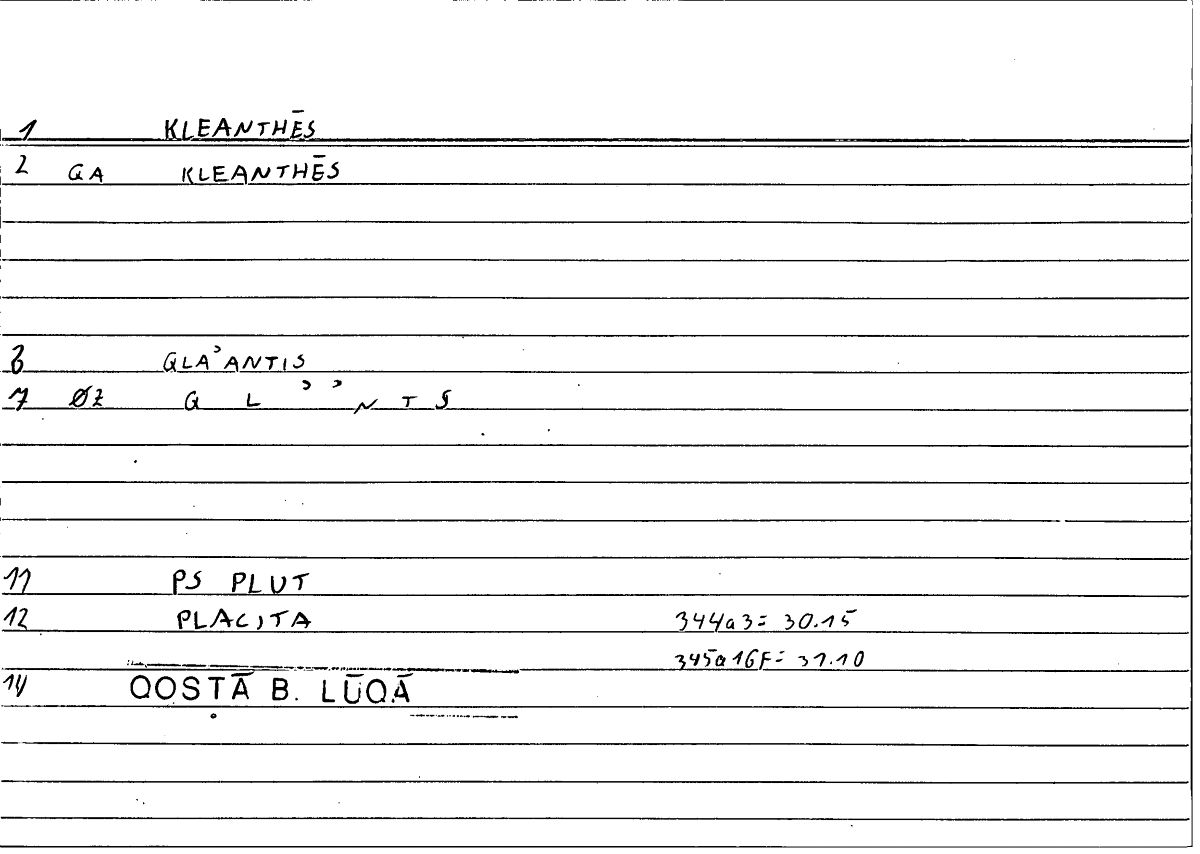 1 KLEANTHĒS
2 GA KLEANTHĒS
6 QLAʾANTIS
7 ØZ Q L ʾ ʾ N T S
11 PS PLUT
12 PLACITA 344a3= 30.15
345a16F= 31.10
14 QOSṬĀ B. LŪQĀ